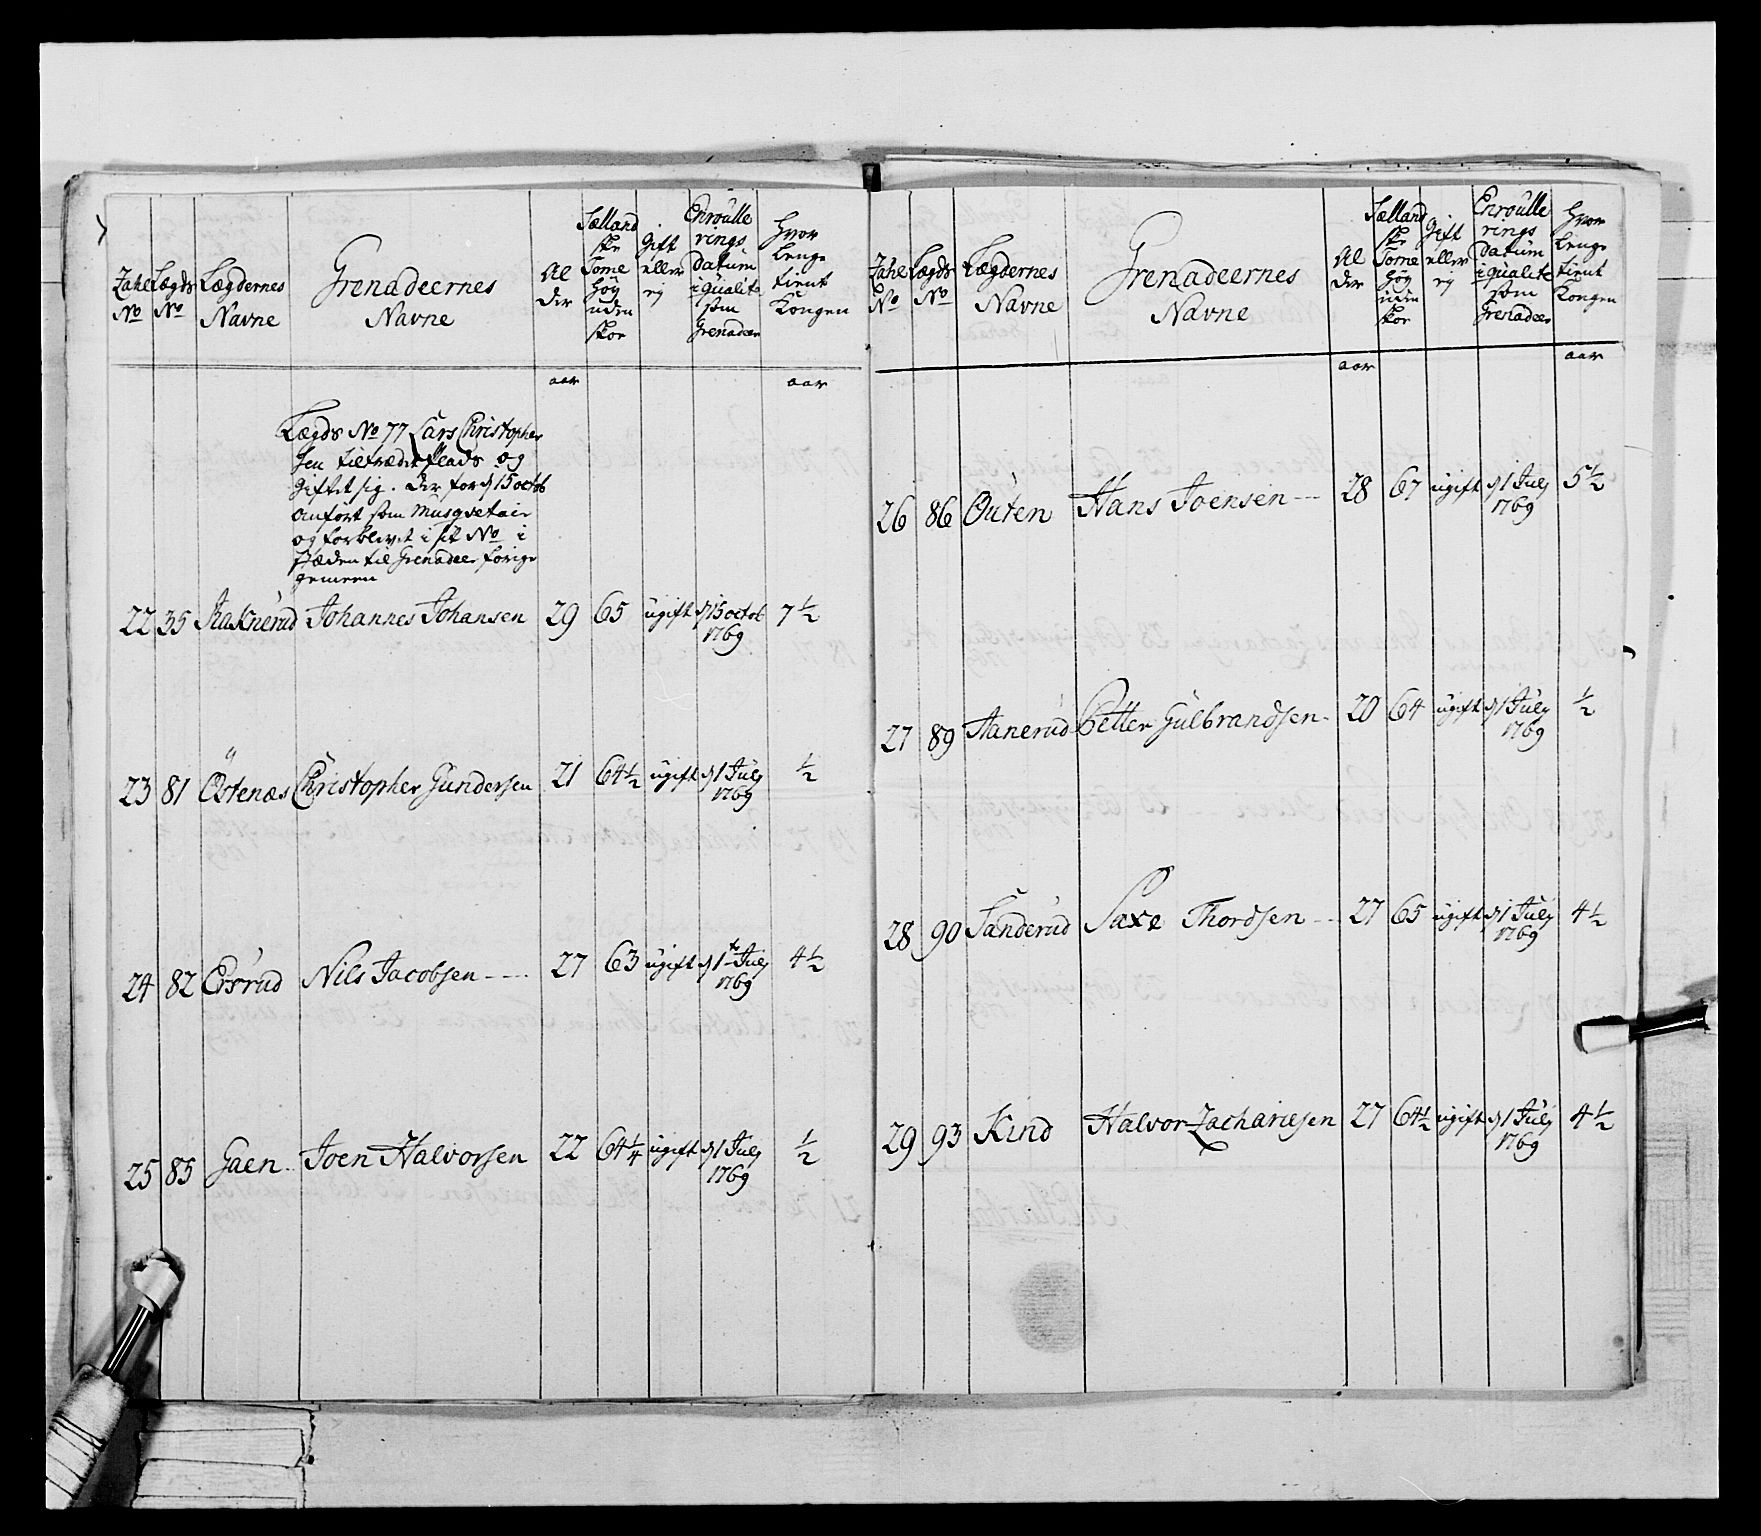 Zahl No | Lægds No | Lægdernes Navne | Grenadeernes Navne | Al der | Sælland ske Tome höy uden skoe | Gift eller ej | Enroulle rings datum i qualite som Grenadeer | Hvor lenge tient Kongen
aar aar
Lægds No 77 Lars Christopher
sen tiltrædet Plads og
Giftet sig. der for d 15 octob
anfört som Musqvetair
og forblivet i sit No i
stæden til Grenadeer forige
gemeen
22 35 Raknerud Johannes Johansen 29 65 ugift d 15 octob 7 1/2
1769
23 81 Östenæs Christopher Gundersen 21 64 1/2 ugift d 1 July 1/2
1769
24 82 Ersrud Nils Jacobsen - - - - 27 63 ugift d 1te July 4 1/2
1769
25 85 Gaen Joen Halvorsen 22 64 1/4 ugift d 1 July 1/2
1769
Zahl No | Lægds No | Lægdernes Navne | Grenadeernes Navne | Al der | Sælland ske Tome höy uden skoe | Gift eller ej | Enroulle rings datum i qualite som Grenadeer | Hvor lenge tient Kongen
aar aar
26 86 Outen Hans Joensen - - - 28 67 ugift d 1 July 5 1/2
1769
27 89 Aanerud Petter Gulbrandsen - 20 64 ugift d 1 July 1/2
1769
28 90 Sanderud Saxe Thordsen - - - 27 65 ugift d 1 July 4 1/2
1769
29 93 Kind Halvor Zachariesen 27 64 1/2 ugift d 1 July 4 1/2
1769